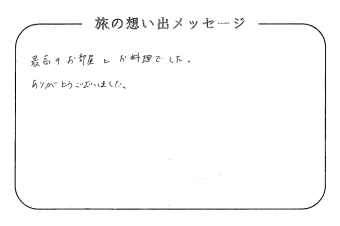 旅の想い出メッセージ
最高のお部屋とお料理でした。
ありがとうございました。